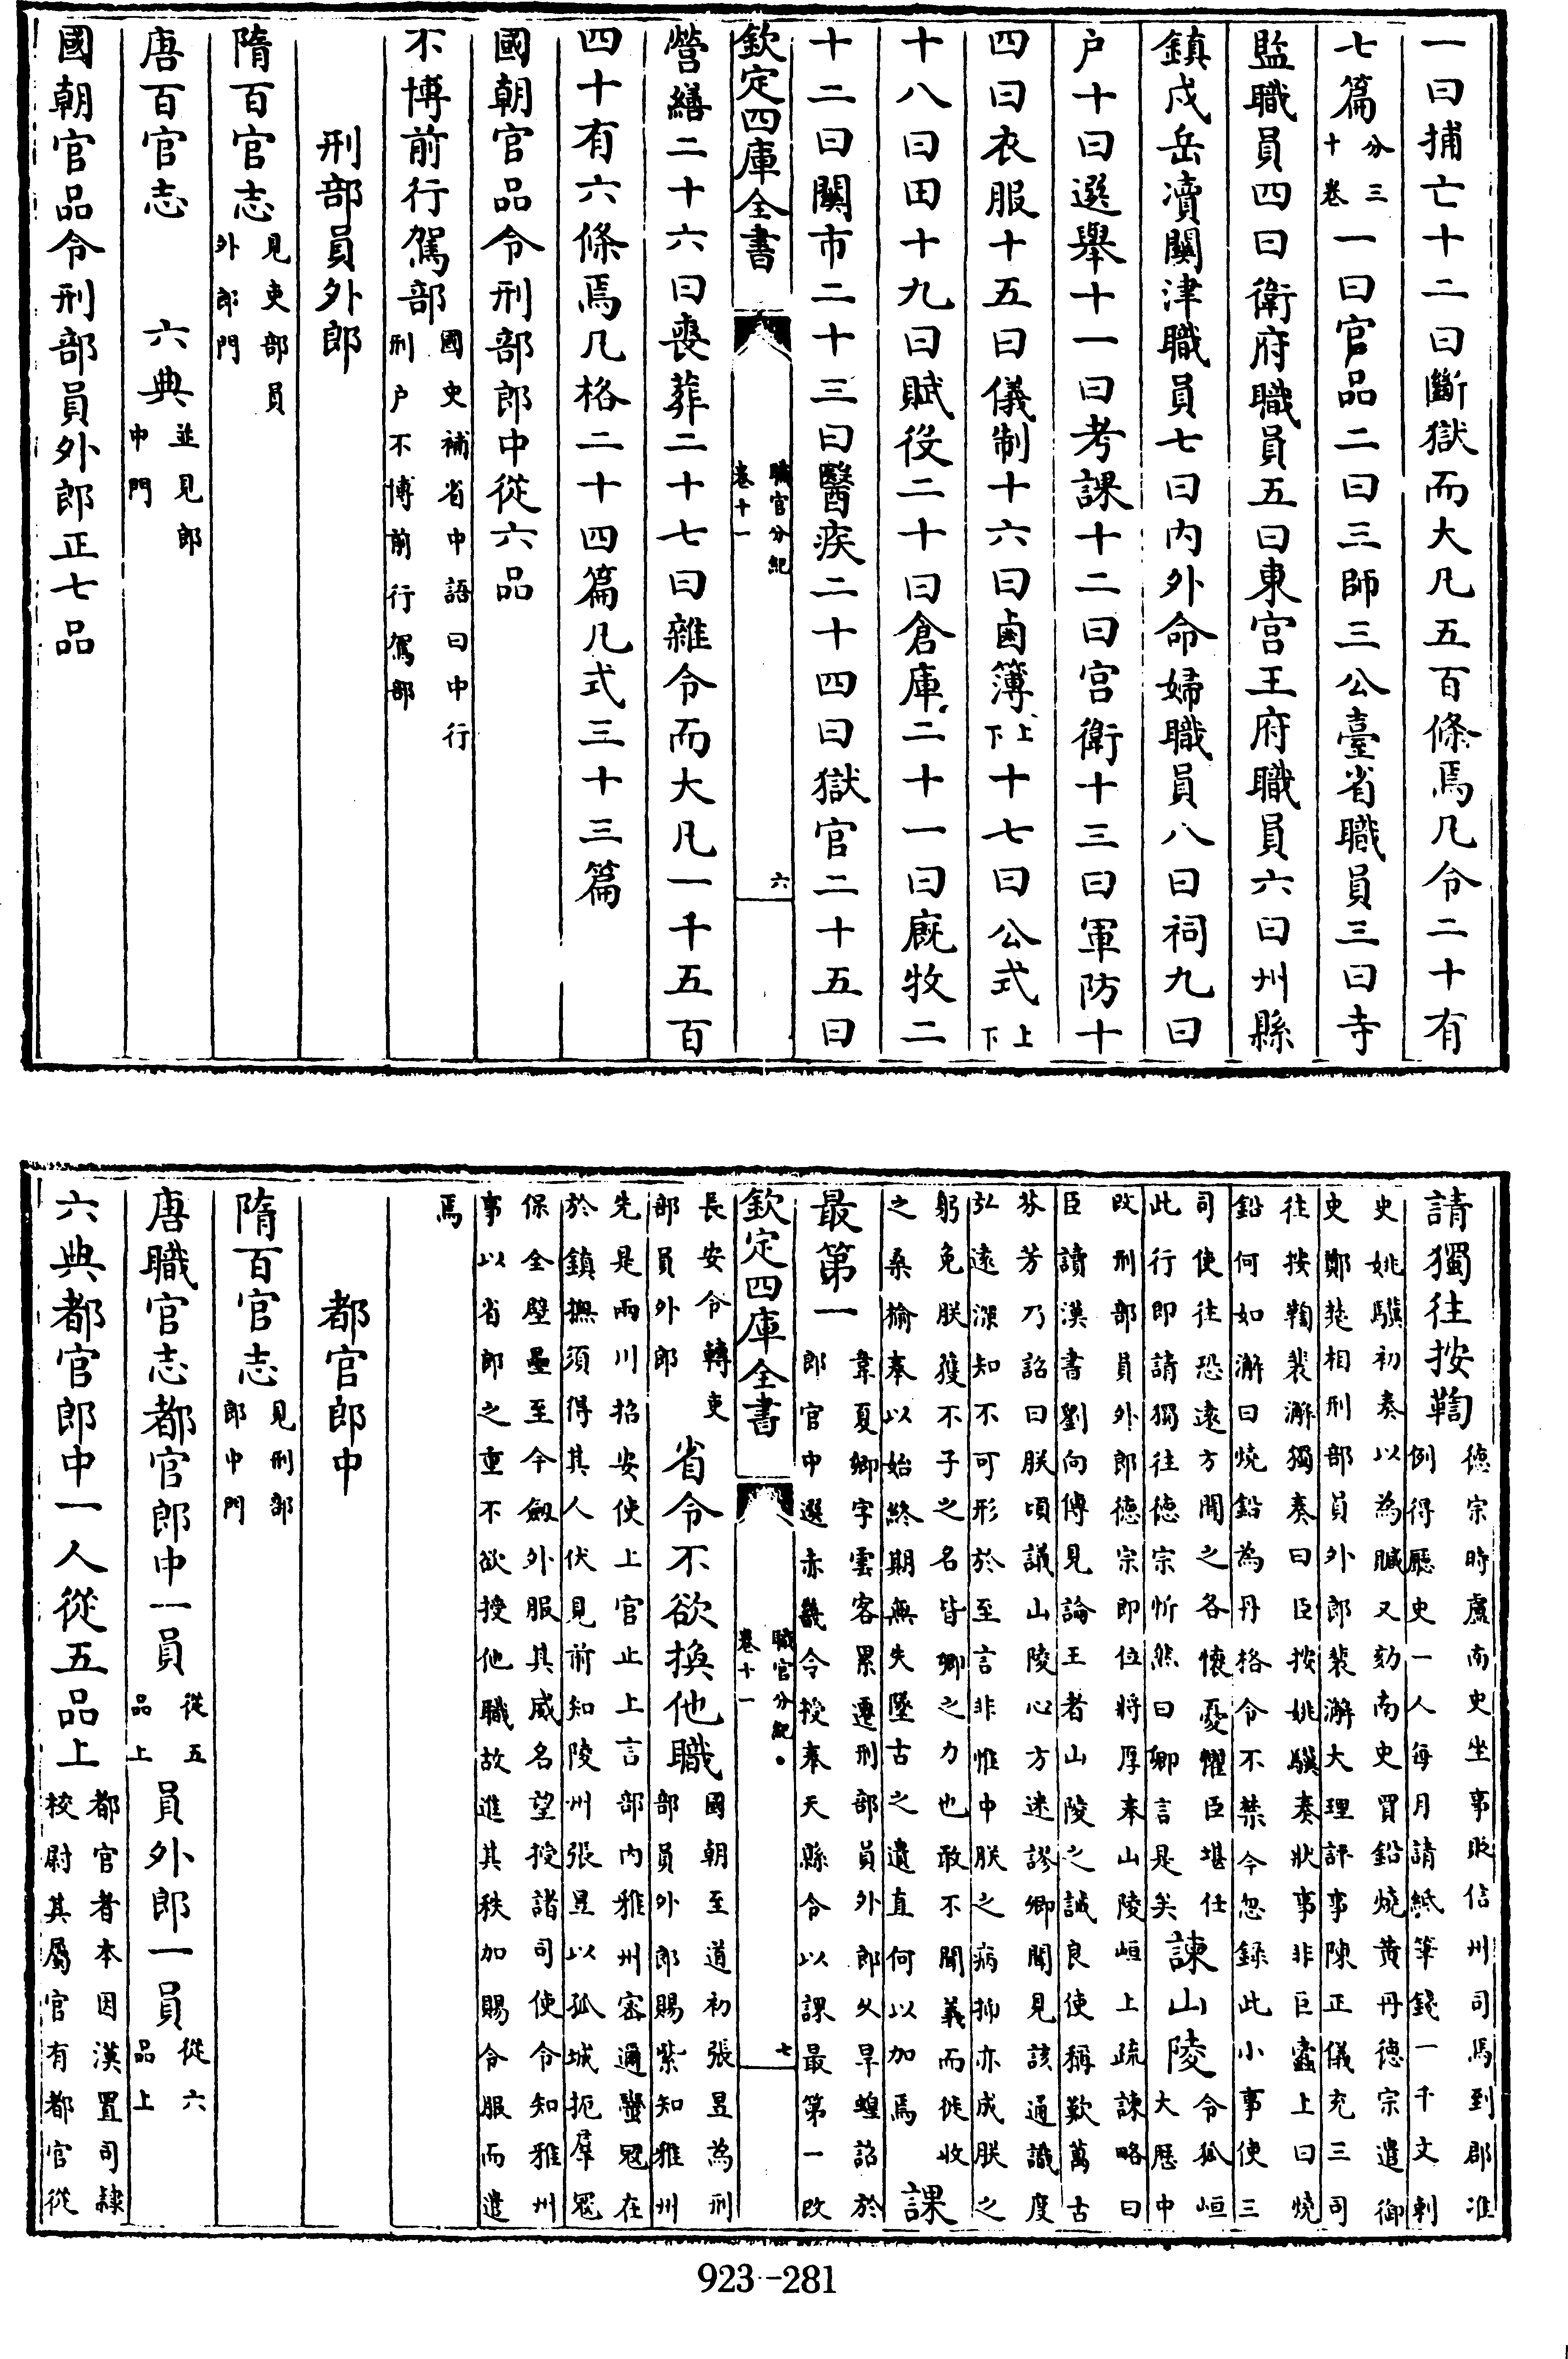 一曰捕亡十二曰斷獄而大凡五百條焉凡令二十有
七篇分三十卷一曰官品二曰三師三公臺省職員三曰寺
監職員四曰衛府職員五曰東宫王府職員六曰州縣
鎮戍岳瀆關津職員七曰内外命婦職員八曰祠九曰
户十曰選舉十一曰考課十二曰宫衛十三曰軍防十
四曰衣服十五曰儀制十六曰鹵簿上下十七曰公式上下
十八曰田十九曰賦役二十曰倉庫二十一曰廐牧二
十二曰關市二十三曰醫疾二十四曰獄官二十五曰
欽定四庫全書
職官分紀
卷十一
六
營繕二十六曰喪葬二十七曰雜令而大凡一千五百
四十有六條焉凡格二十四篇凡式三十三篇
國朝官品令刑部郎中從六品
不博前行駕部國史補省中語曰中行
刑户不博前行駕部
刑部員外郎
隋百官志見吏部員
外郎門
唐百官志 六典並見郎
中門
國朝官品令刑部員外郎正七品
請獨往按鞫德宗時盧南史坐事貶信州司馬到郡准
例得廳史一人每月請紙筆錢一千文刺
史姚驥初奏以為贓又劾南史買鉛燒黄丹德宗遣御
史鄭楚相刑部員外郎裴澥大理評事陳正儀充三司
往按鞫裴澥獨奏曰臣按姚驥奏狀事非巨蠧上曰燒
鉛何如澥曰燒鉛為丹格令不禁今忽録此小事使三
司使往恐遠方聞之各懷憂懼臣堪任
此行即請獨往德宗忻然曰卿言是矣諫山陵令狐峘
大歷中
改刑部員外郎德宗即位將厚奉山陵峘上疏諫略曰
臣讀漢書劉向傳見論王者山陵之誡良使稱歎萬古
芬芳乃詔曰朕頃議山陵心方迷謬卿聞見該通識度
弘遠深知不可形於至言非惟中朕之病抑亦成朕之
躬免朕獲不子之名皆卿之力也敢不聞義而徙收
之桑榆奉以始終期無失墜古之遺直何以加焉課
最第一韋夏卿字雲客累遷刑部員外郎久旱蝗詔於
郎官中選赤畿令授奉天縣令以課最第一改
欽定四庫全書
職官分紀
卷十一
七
長安令轉吏
部員外郎省令不欲換他職國朝至道初張昱為刑
部員外郎賜紫知雅州
先是兩川招安使上官止上言部内雅州密邇蠻冦在
於鎮撫須得其人伏見前知陵州張昱以孤城扼羣冦
保全壁壘至今劔外服其威名望授諸司使令知雅州
事以省郎之重不欲授他職故進其秩加賜命服而遣
焉
都官郎中
隋百官志見刑部
郎中門
唐職官志都官郎中一員從五
品上員外郎一員從六
品上
六典都官郎中一人從五品上都官者本因漢置司隸
校尉其屬官有都官從
923-281